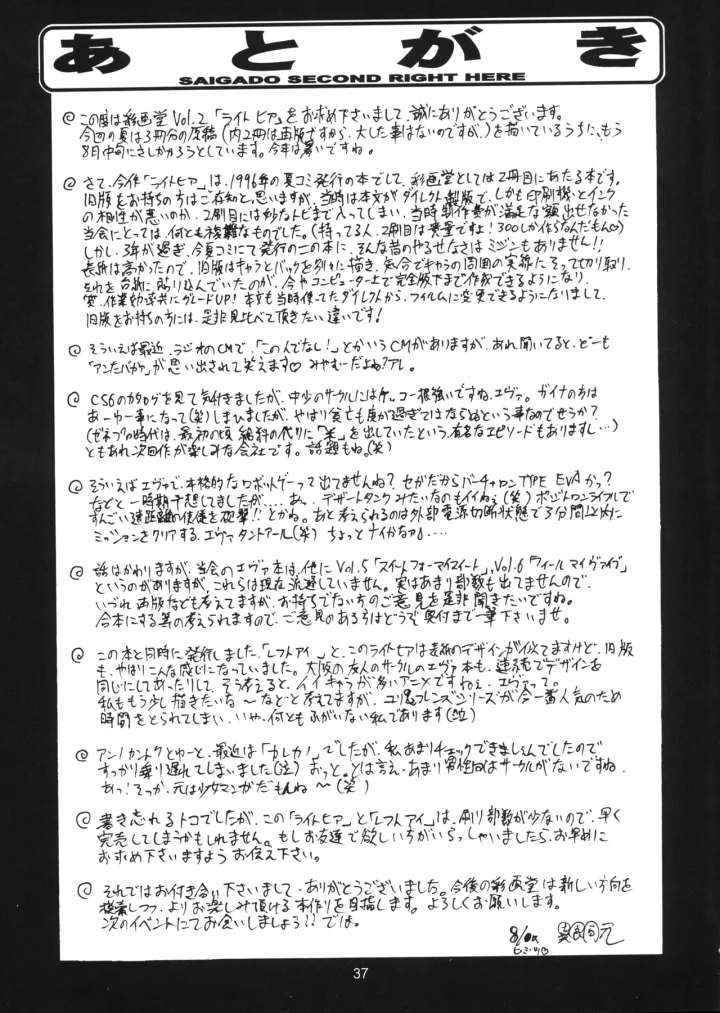 あとがき
SAIGADO SECOND RIGHT HERE
この度は彩画堂Vol.2「ライトヒア」をお求め下さいまして、誠にありがとうございます。
今回の夏は3冊分の原稿(内2冊は再版ですから、大した事はないのですが、)を描いているうちに、もう
8月中旬にさしかかろうとしています。今年は暑いですね。
さて、今作「ライトヒア」は、1996年の夏コミ発行の本でして、彩画堂としては2冊目にあたる本です。
旧版をお持ちの方はご存知と思いますが、当時は本文がダイレクト製版で、しかも印刷機とインク
の相性が悪いのか、2刷目には妙なトビまで入ってしまい、当時製作費が満足な額出せなかった
当会にとっては、何とも複雑なものでした。(持ってる人、2刷目は貴重ですよ!300しか作らなんだもん♡)
しかし、3年が過ぎ、今夏コミにて発行のこの本に、そんな昔のやるせなさはミジンもありません!!
表紙は高かったので、旧版はキャラとバックを別々に描き、気合でキャラの周囲の実線にそって切り取り、
それを台紙に貼り込んでいたのが、今やコンピューター上で完全版下まで作成できるようになり、
質、作業効率共にグレードUP!本文も当時使ってたダイレクトから、フィルムに変更できるようになりまして、
旧版をお持ちの方には、是非見比べて頂きたい違いです!
そういえば最近、ラジオのCMで、「この人でなし!」とかいうCMがありますが、あれ聞いてると、どーも
「アンタバカァ」が思い出されて笑えます♡みやむーだよね?アレ。
CS6のカタログを見て気付きましたが、中少のサークルにはケッコー根強いですね、エヴァ。ガイナの方は
あーゆー事になって(笑)しまひましたが、やはり貧乏も度が過ぎてはならぬという事なのでせうか?
(ゼネプロ時代は、最初の頃 給料の代りに「米」を出していたという、有名なエピソードもありますし…)
ともあれ次回作が楽しみな会社です。話題もね。(笑)
そういえばエヴァで、本格的なロボットゲーって出てませんね?セガだからバーチャロンTYPE EVAかっ?
などと一時期予想してましたが、…あ、デザートタンクみたいなのもイイねぇ(笑)ポジトロンライフルで
すんごい遠距離の使徒を砲撃!!とかね。あと考えられるのは外部電源切断状態で3分間以内に
ミッションをクリアする、エヴァタントアール(笑)ちょっとナイかなァ…
話はかわりますが、当会のエヴァ本は、他にVol.5「スイートフォーマイスイート」、Vol.6「フィールマイヴァイヴ」
というのがありますが、これらは現在流通していません。実はあまり部数も出てませんので、
いづれ再版なども考えてますが、お持ちでない方のご意見を是非聞きたいですね。
合本にする等の考えられますので、ご意見のある方はどうぞ奥付まで一筆下さいませ。
この本と同時に発行しました、「レフトアイ」と、このライトヒアは表紙のデザインが似てますけど、旧版
も、やはりこんな感じになっていました。大阪の友人のサークルのエヴァ本も、連る号でデザインを
同じにしてあったりして、そう考えると、イイキャラが多いアニメですねぇ、エヴァって。
私ももう少し描きたいな〜などと考えてますが、ユリ&フレンズシリーズが今一番人気のため
時間をとられてしまい、いや、何ともふがいない私であります(泣)
アンノカントクとゆーと、最近は「カレカノ」でしたが、私あまりチェックできませんでしたので
すっかり乗り遅れてしまいました(泣)おっと。とは言え、あまり男性向はサークルがないですね。
あっ!そっか、元は少女マンガだもんね〜(笑)
書き忘れるトコでしたが、この「ライトヒア」と「レフトアイ」は、刷り部数が少ないので、早く
完売してしまうかもしれません。もしお友達で欲しい方がいらっしゃいましたら、お早めに
お求め下さいますようお伝え下さい。
それではお付き合い下さいまして、ありがとうございました。今後の彩画堂は新しい方向を
模索しつつ、よりお楽しみ頂ける本作りを目指します。よろしくお願いします。
次のイベントにてお会いしましょう!!では。
37